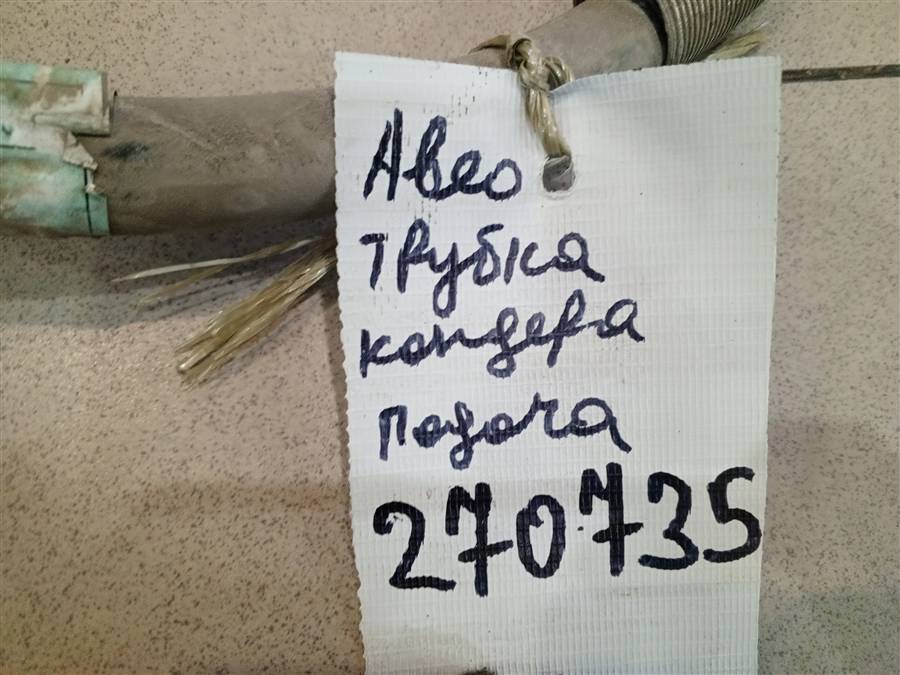 Авео
трубка
кондера
подача
270735